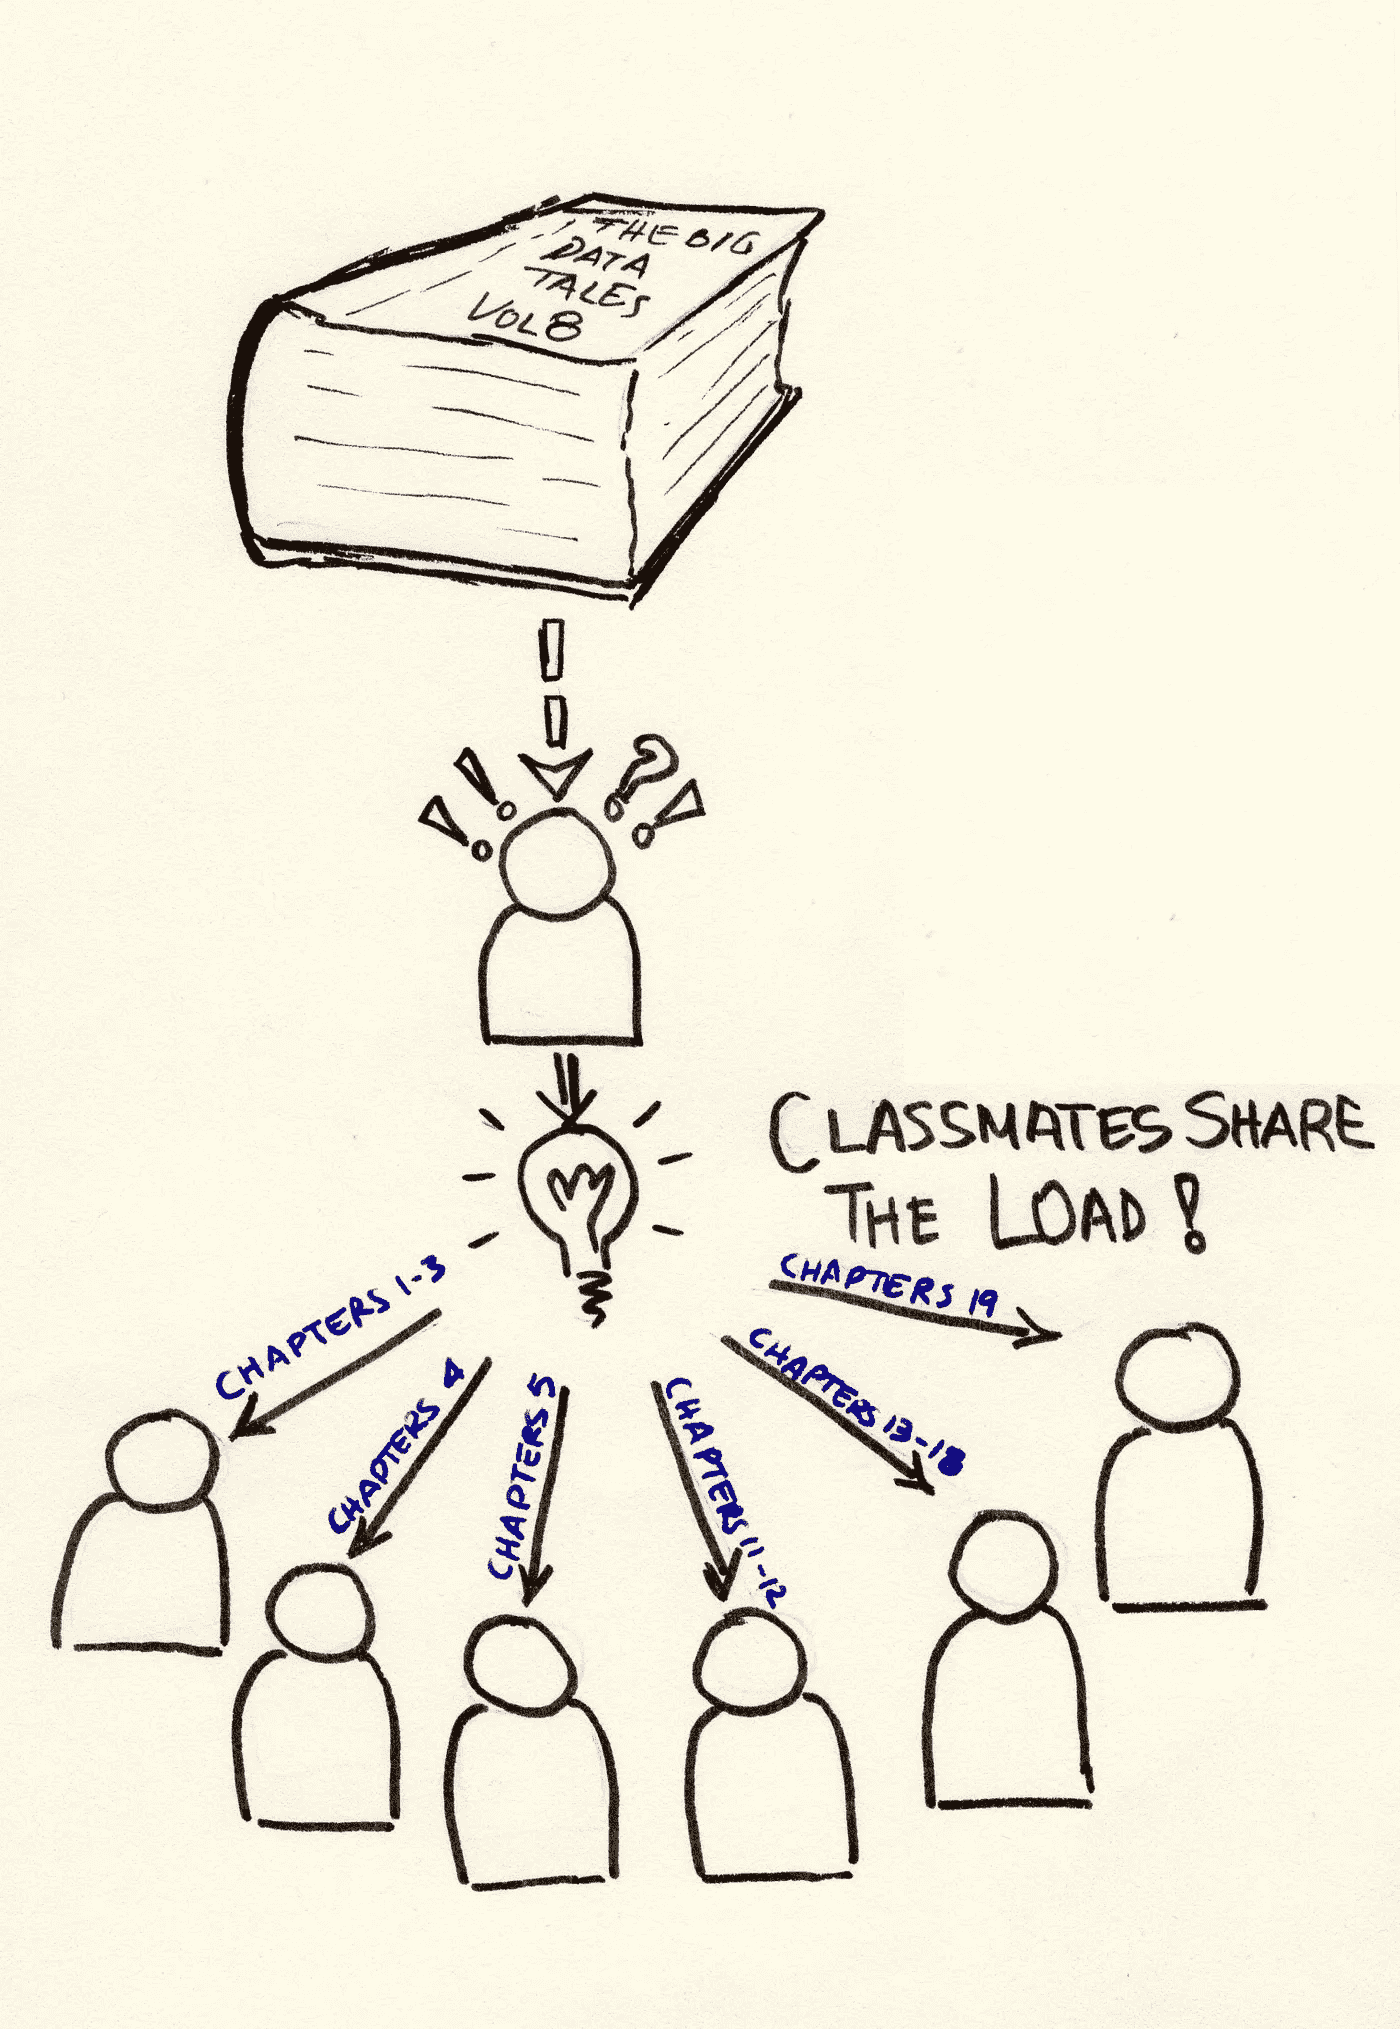 THE BIG
DATA
TALES
VOL 8
CLASSMATES SHARE
THE LOAD!
CHAPTERS 1-3
CHAPTERS 4
CHAPTERS 5
CHAPTERS 11-12
CHAPTERS 13-18
CHAPTERS 19